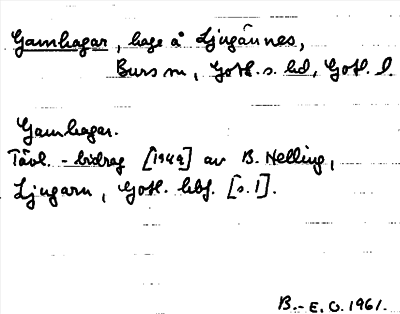 Gamhagar, hage å Ljugännes,
Burs sn, Gotl. s. hd, Gotl. l.
Gamhagar.
Tävl.-bidrag [1949] av B. Nelling,
Ljugarn, Gotl. kbf. [s. 1].
B.-E. O. 1961.